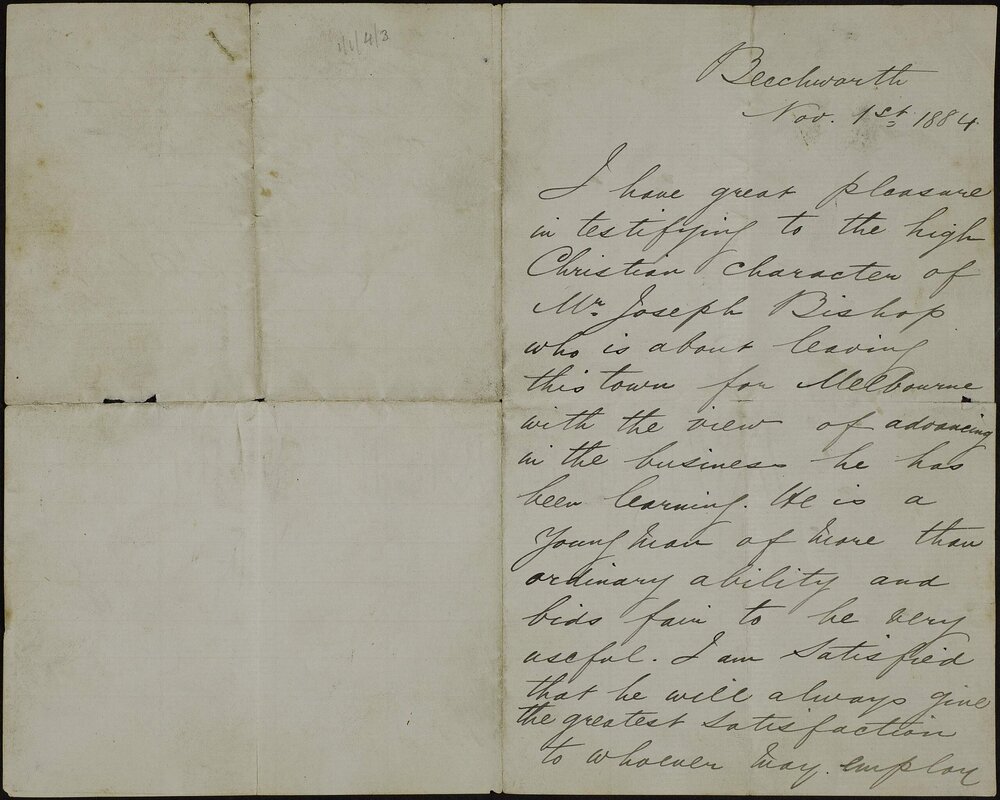 1/1/4/3
Beechworth
Nov. 1st 1884
I have great pleasure
in testifying to the high
Christian character of
Mr Joseph Bishop
who is about leaving
this town for Melbourne
with the view of advancing
in the business he has
been learning. He is a
Young Man of More than
ordinary ability and
bids fair to be very
useful. I am satisfied
that he will always give
the greatest satisfaction
to whoever may employ